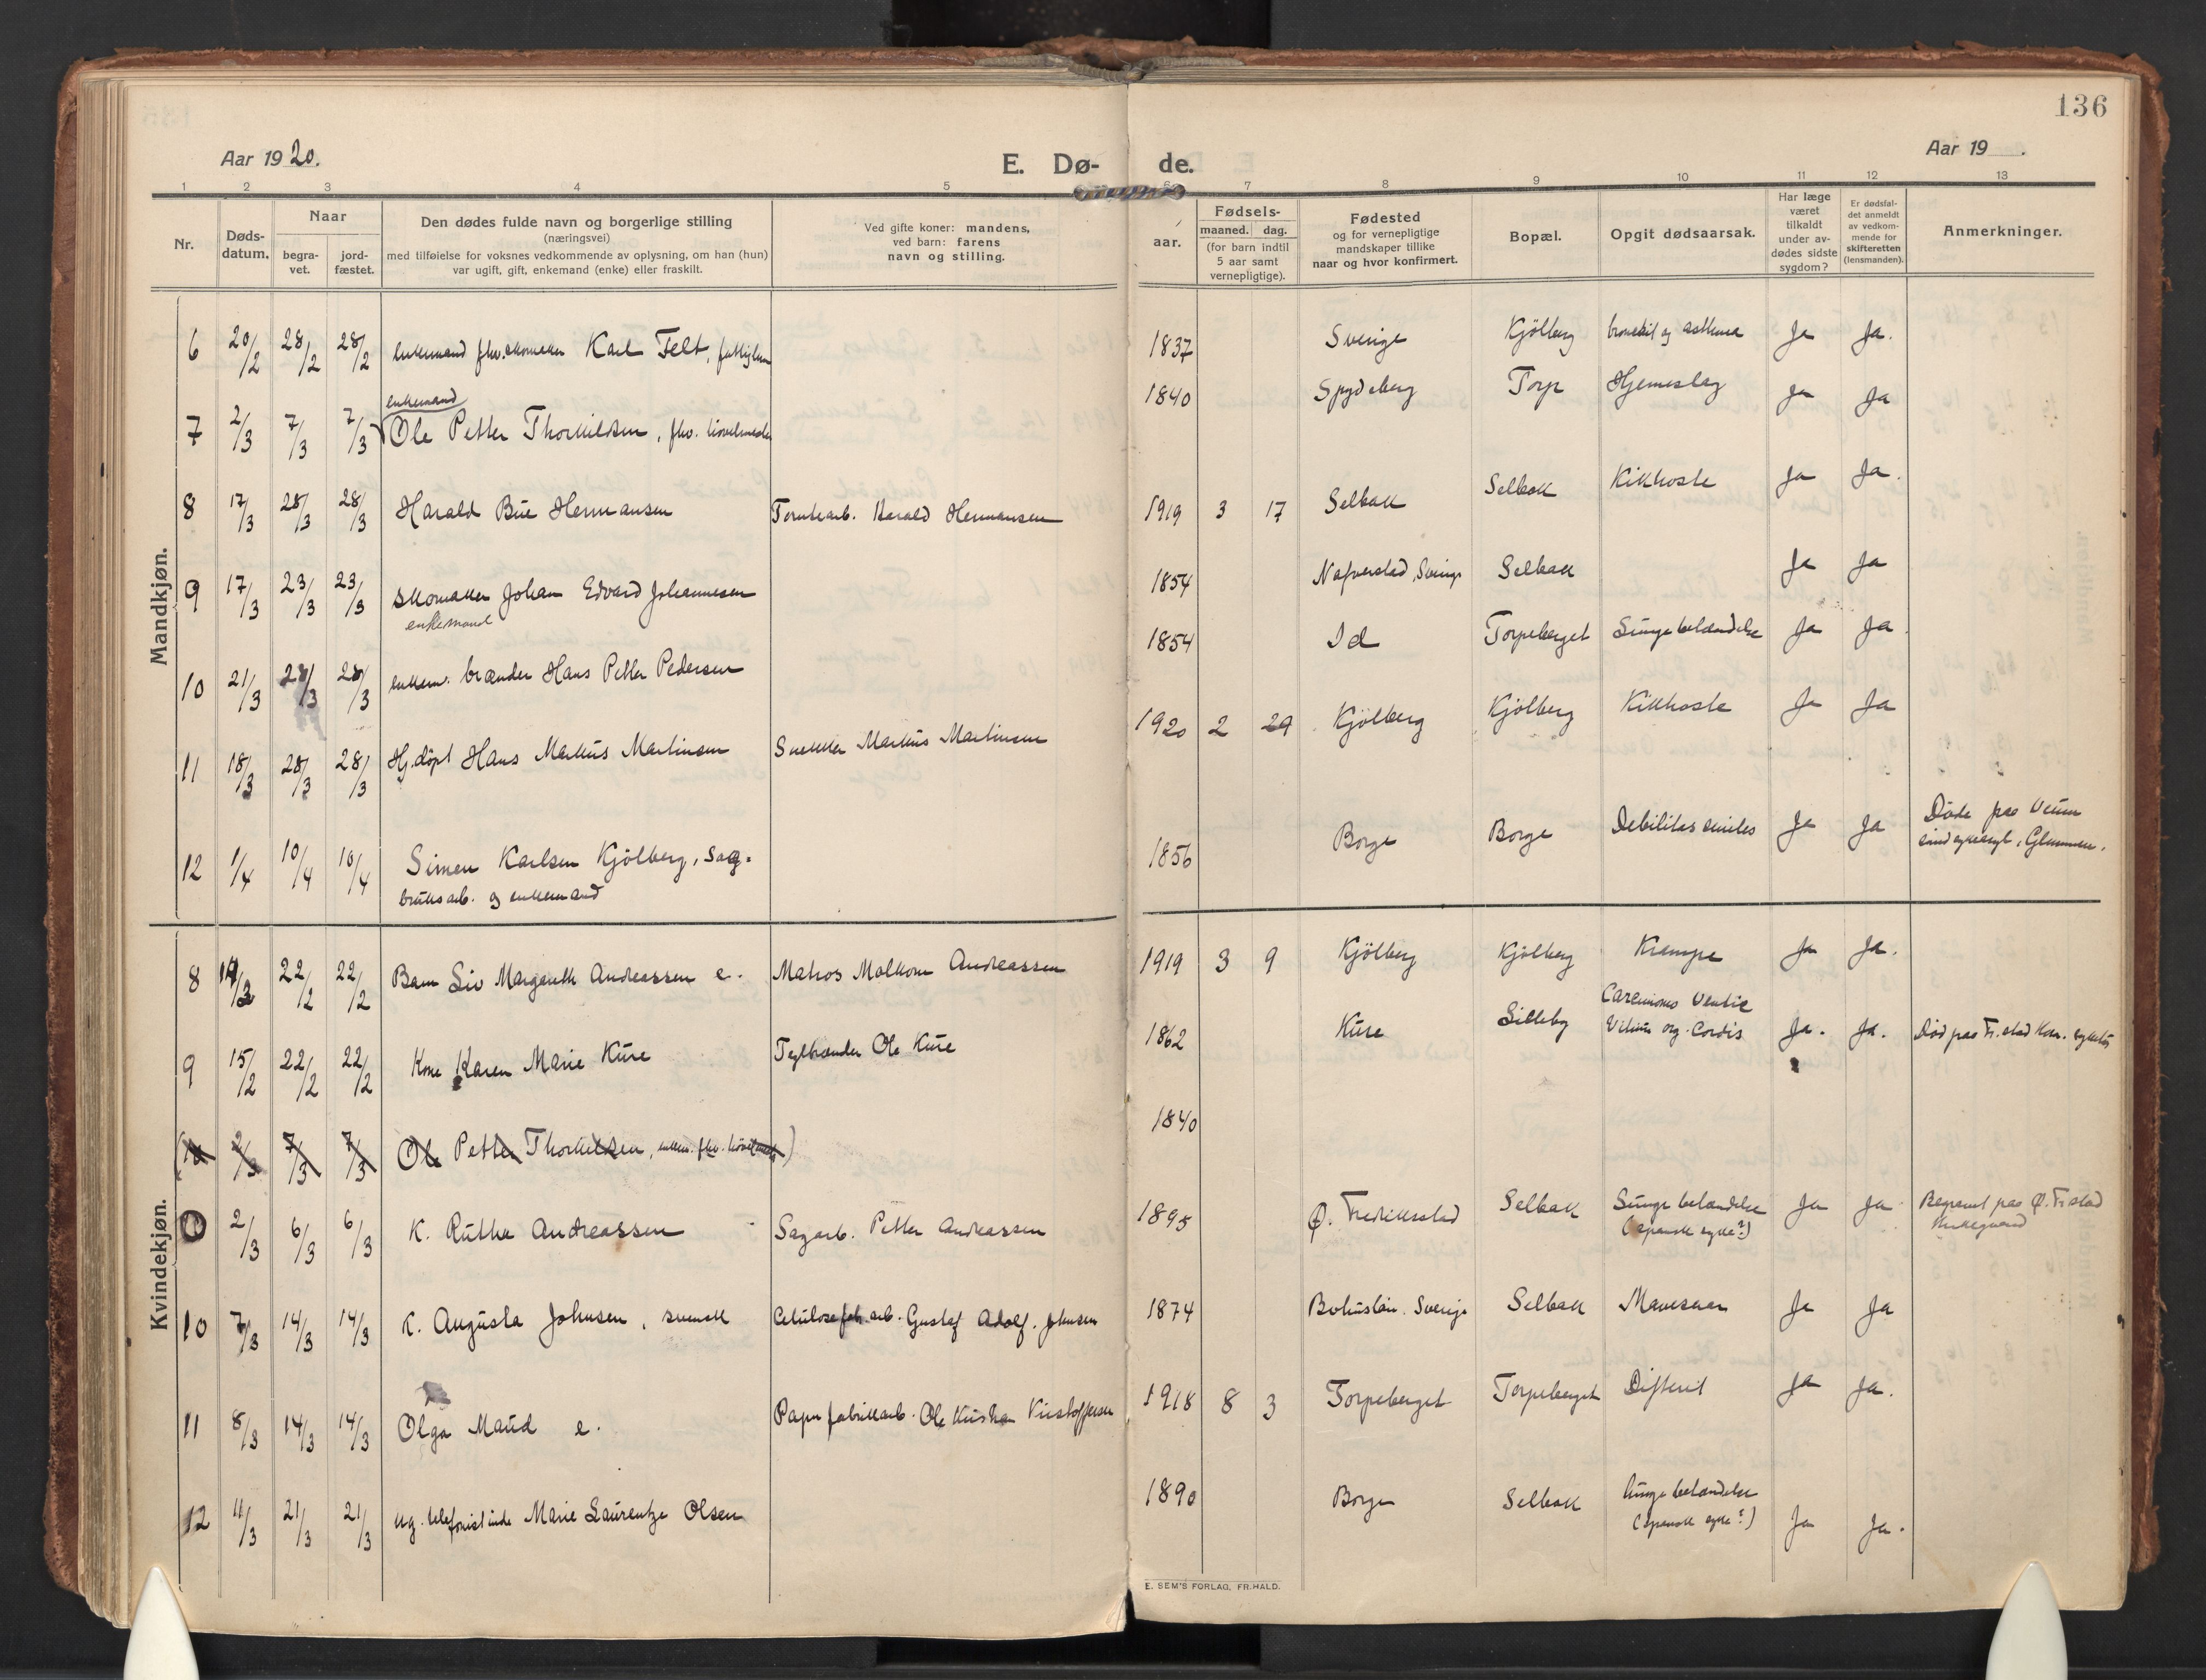 136
Aar 1920.
E. Dø- de.
Aar 19 .
1 2 3 4 5 6 7 8 9 10 11 12 13
Nr.
Døds-
datum.
Naar
begra-
vet.
jord-
fæstet.
Den dødes fulde navn og borgerlige stilling
(næringsvei)
med tilføielse for voksnes vedkommende av oplysning, om han (hun)
var ugift, gift, enkemand (enke) eller fraskilt.
Ved gifte koner: mandens,
ved barn: farens
navn og stilling.
Fødsels-
aar.
maaned. dag.
(for barn indtil
5 aar samt
vernepligtige).
Fødested
og for vernepligtige
mandskaper tillike
naar og hvor konfirmert.
Bopæl.
Opgit dødsaarsak.
Har læge
været
tilkaldt
under av-
dødes sidste
sygdom?
Er dødsfal-
det anmeldt
av vedkom-
mende for
skifteretten
(lensmanden).
Anmerkninger.
Mandkjøn.
6 20/2 28/2 28/2 enkemand fhv. skomaker Karl Felt, 1837 Sverige Kjölberg bronchit og asthma Ja Ja.
enkemand
7 2/3 7/3 7/3 Ole Petter Thorkildsen, fhv. 1840 Spydeberg Torp Hjerneslag Ja Ja
8 17/3 28/3 28/3 Harald Bue Hermansen Harald Hermansen 1919 3 17 Selbak Selbak Kikhoste Ja Ja.
9 17/3 23/3 23/3 skomaker Johan Edvard Johannesen 1854 Nafverstad, Sverige Selbak Ja Ja
enkemand
10 21/3 28/3 28/3 enkem. brænder Hans Petter Pedersen 1854 Id Torpeberget Lungebetændelse Ja Ja.
11 18/3 28/3 28/3 Hj.döpt Hans Markus Martinsen Snekker Markus Martinsen 1920 2 29 Kjölberg Kjölberg Kikhoste Ja Ja
12 1/4 10/4 10/4 Simen Karlsen Kjölberg, sag- 1856 Borge Borge Debilitas seniles Ja Ja Döde paa Veum
bruksarb. og enkemand sindsykeasyl, Glemmen.
Kvindekjøn.
8 22/2 22/2 Barn Liv Margareth Andreassen e. Matros Malkom Andreassen 1919 3 9 Kjölberg Kjölberg Krampe Ja Ja.
9 15/2 22/2 22/2 Kone Karen Marie Kure Teglbrænder Ole Kure 1862 Kure Lilleby Carcinoma Ventric Ja. Ja. Död paa Fr.stad Kom. sykehus
Vitium org. Cordis
(10 2/3 7/3 7/3 Ole Petter Thorkildsen, enkem. fhv.) 1840
2/3 6/3 6/3 K. Rutha Andreassen Sagarb. Petter Andreassen 1895 Ø. Fredriksstad Selbak Lungebetændelse Ja Ja Begravet paa Ø. Fr.stad
(spansk syke?) kirkegaard
10 7/3 14/3 14/3 K. Augusta Johnsen, svensk Celulosefab.arb. Gustaf Adolf Johnsen 1874 Bohuslän. Sverige Selbak Mavesaar Ja Ja
11 8/3 14/3 14/3 Olga Maud e. Papirfabrikarb. Ole Kristian Kristoffersen 1918 8 3 Torpeberget Torpeberget Difterit Ja Ja.
12 11/3 21/3 21/3 ug. telefonistinde Marie Laurentze Olsen 1890 Borge Selbak lungebetændelse
(spansk syke?) Ja Ja.
E. SEM'S FORLAG, FR.HALD.